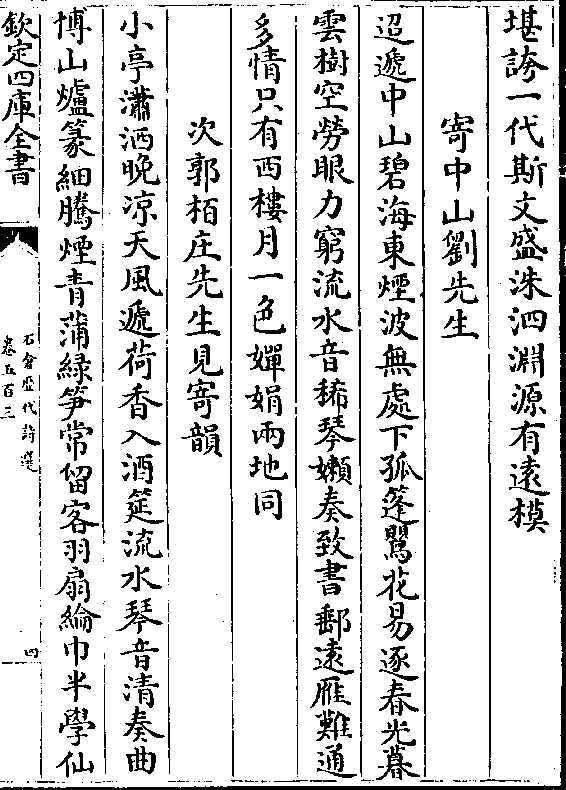 堪誇一代斯文盛洙泗淵源有遠模
寄中山劉先生
迢遞中山碧海東煙波無處下孤篷鸎花易逐春光暮
雲樹空勞眼力窮流水音稀琴嬾奏致書郵遠雁難通
多情只有西樓月一色嬋娟兩地同
次郭栢庄先生見寄韻
小亭瀟洒晚涼天風遞荷香入酒筵流水琴音清奏曲
博山爐篆細騰煙青蒲緑笋常留客羽扇綸巾半學仙
欽定四庫全書
石倉歴代詩選
卷五百三
四